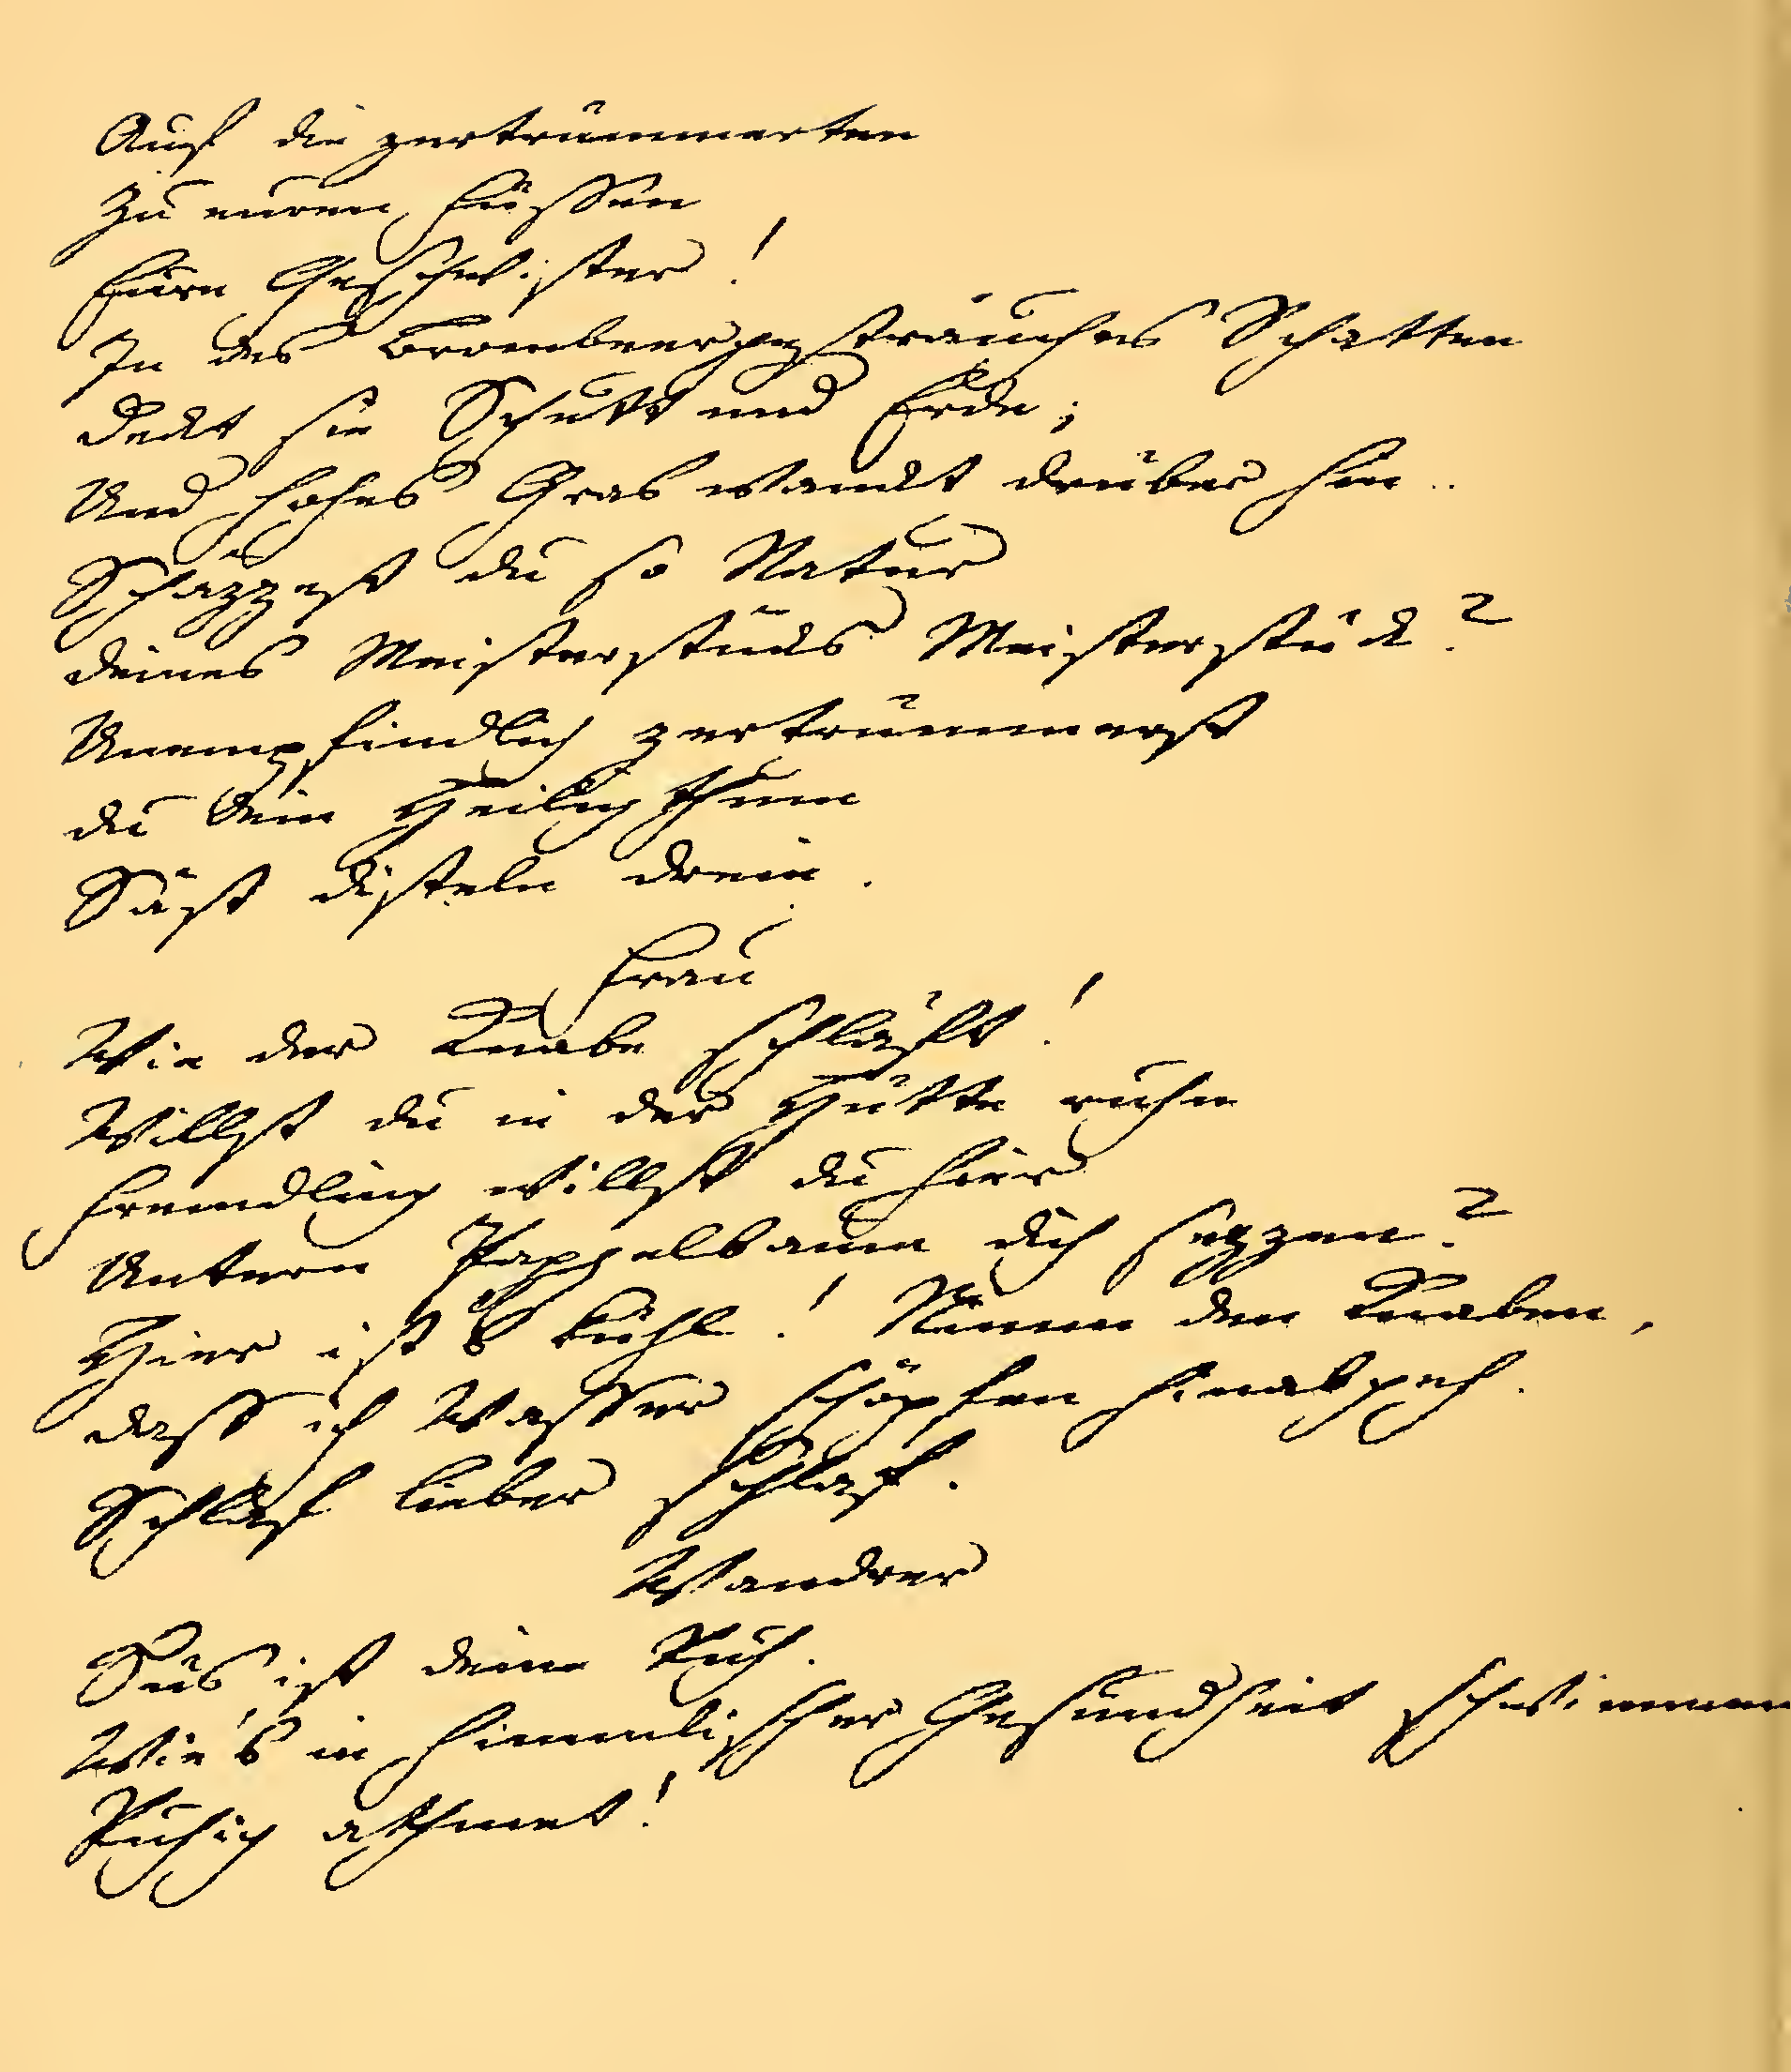 Auf die zertrümmerten
Zu euren Füssen
Eure Geschwister!
In des Brombeergesträuches Schatten
Deckt sie Schutt und Erde;
Und hohes Gras wanckt drüber hin..
Schäzzest du so Natur
deines Meisterstücks Meisterstück?
Unempfindlich zertrümmerst
du dein Heiligthum
Säst disteln drein.
Frau
Wie der Knabe schläft!
Willst du in der Hütte ruhn
Fremdling willst du hier
Untern Pappelbaum dich sezzen?
Hier ists kühl! Nimm den Knaben,
dass ich Wasser schöpfen hinabgeh.
Schlaf lieber schlaf.
Wandrer
Süs ist deine Ruh.
Wie's in himmlischer Gesundheit schwimmend
Ruhig athmet!